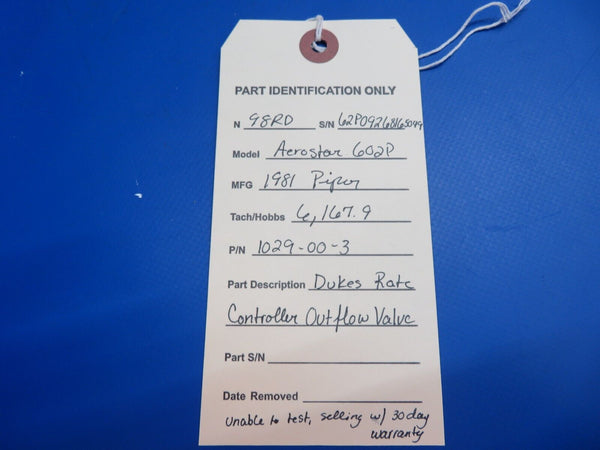 PART IDENTIFICATION ONLY
N 98RD S/N 62P09268165049
Model Aerostar 602P
MFG 1981 Piper
Tach/Hobbs 6,167.9
P/N 1029-00-3
Part Description Dukes Rate
Controller Outflow Valve
Part S/N
Date Removed
Unable to test, selling w/ 30 day
warranty